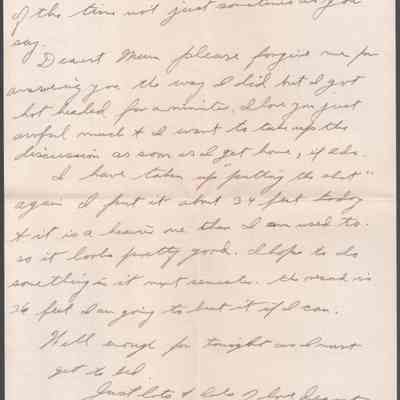 of the time not just sometimes as you
say.
Dearest Mum please forgive me for
answering you the way I did but I got
hot headed for a minute. I love you just
awful much & I want to take up the
discussion as soon as I get home, if I do.
I have taken up "putting the shot"
again I put it about 34 feet today
& it is a heavier one than I am used to.
so it looks pretty good. I hope to do
something in it next semester. the record is
36 feet I am going to beat it if I can.
Well enough for tonight as I must
get to bed
Just lots & lots of love